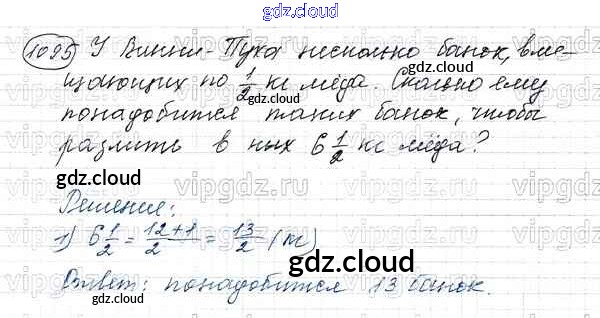 gdz.cloud
1095) У Винни-Пуха несколько банок, вме-
щающих по 1/2 кг мёда. Сколько ему
понадобится таких банок, чтобы
разлить в них 6 1/2 кг мёда?
gdz.cloud
gdz.cloud
Решение:
1) 6 1/2 = 12+1/2 = 13/2 (м)
gdz.cloud
Ответ: понадобится 13 банок.